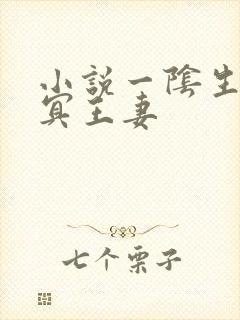 小説一陰生
冥王妻
七个栗子